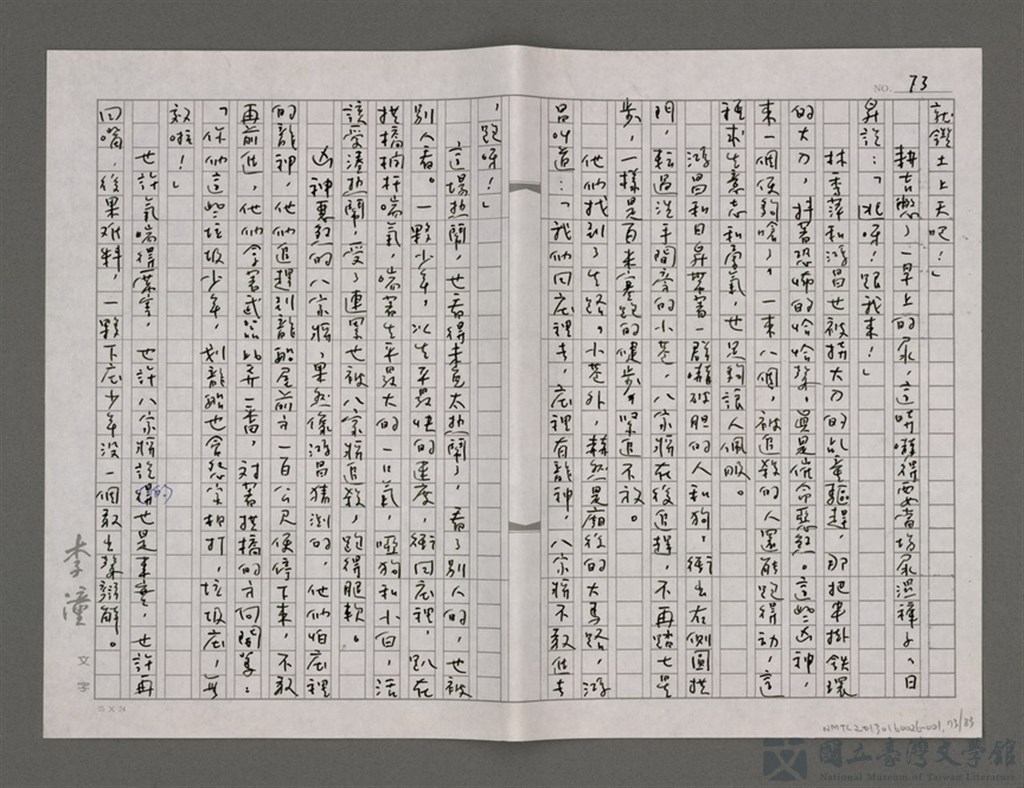 NO. 73
就鑽土上天吧！」
耕吉憋了一早上的尿，這時嚇得要當場尿濕褲子、日
昇說：「跑呀！跟我來！」
林秀萍和游昌也被持大刀的乩童驅趕，那把串掛鐵環
的大刀，抖著恐怖的哈哈聲，真是催命惡煞。這些凶神，
來一個便夠嗆了，一來八個，被追殺的人還能跑得動，這
種求生意志和勇氣，也足夠讓人佩服。
游昌和日昇帶著一群嚇破胆的人和狗，衝出右側圓拱
門，轉過洗手間旁的小巷，八家將在後追趕，不再踏七星
步，一樣是百米賽跑的健步，緊追不放。
他們找到了生路。小巷外，赫然是廟後的大馬路，游
昌叫道：「我們回底裡去，底裡有龍神，八家將不敢進去
，跑呀！」
這場熱鬧，也看得未免太熱鬧了，看了別人的，也被
別人看。一夥少年，以生平最快的速度，衝回底裡，趴在
拱橋欄杆喘氣，喘著生平最大的一口氣，啞狗和小白，活
該受湊熱鬧！受了連累也被八家將追殺，跑得腿軟。
凶神惡煞的八家將，果然像游昌猜測的，他們怕底裡
的龍神，他們追趕到龍船厝前方一百公尺便停下來，不敢
再前進，他們拿著武器比弄一番，對著拱橋的方向開罵：
「你們這些垃圾少年，划龍船也會給人打，垃圾底，無
效啦！」
也許氣喘得厲害，也許八家將說的也是事實，也許再
回嘴，後果难料，一夥下底少年沒一個敢出聲辯解。
李潼
文字
25 X 24
NMTL20130160026-001, 73/83
國立臺灣文學館
National Museum of Taiwan Literature